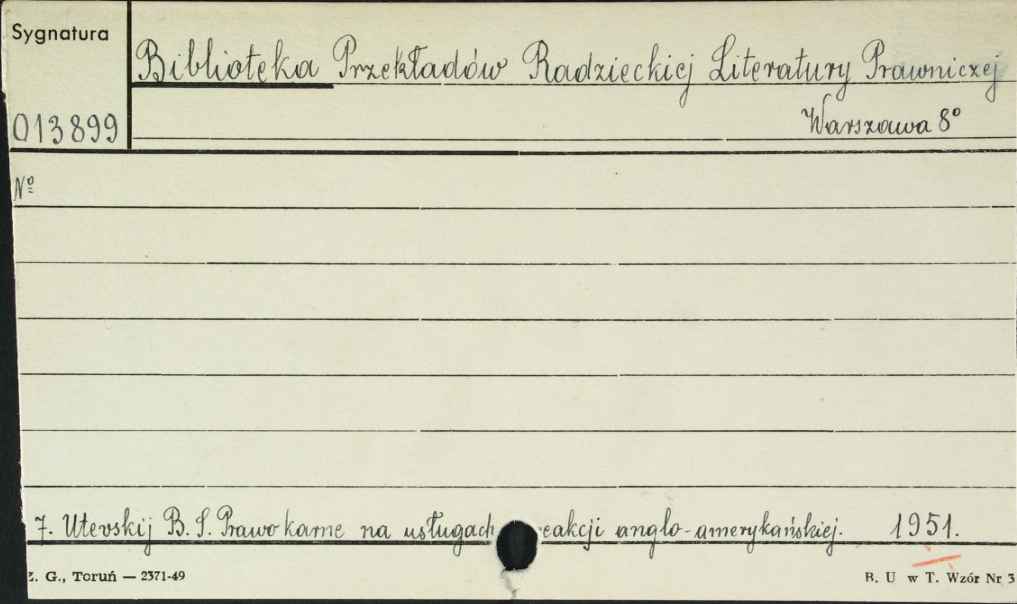 Sygnatura
Biblioteka Przekładów Radzieckiej Literatury Prawniczej
013899
Warszawa 8°
Nº
7. Utevskij B. S. Prawo karne na usługach eakcji anglo-amerykańskiej. 1951.
Z. G., Toruń — 2371-49
B. U w T. Wzór Nr 3